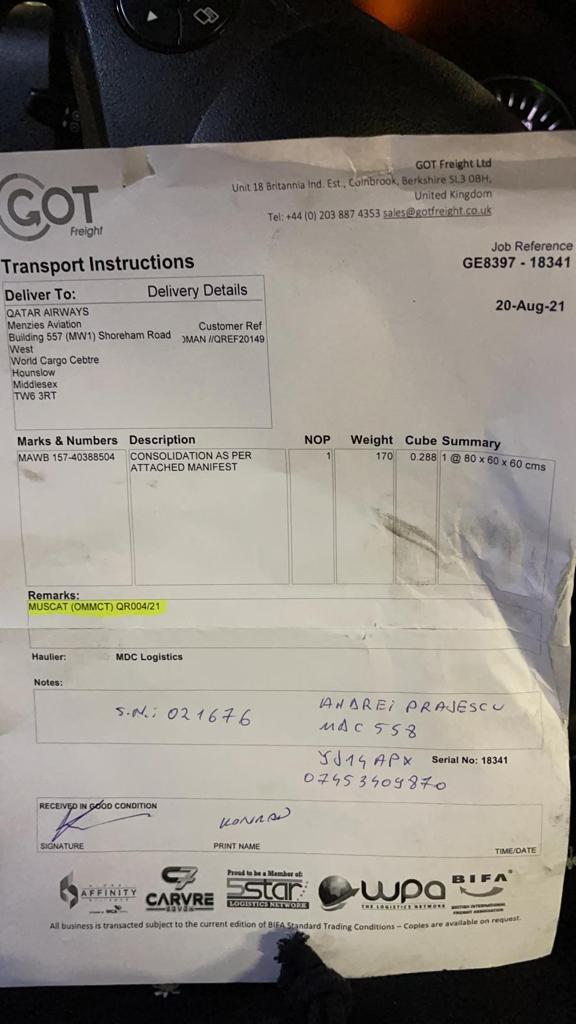 GOT
Freight
GOT Freight Ltd
Unit 18 Britannia Ind. Est., Colnbrook, Berkshire SL3 0BH,
United Kingdom
Tel: +44 (0) 203 887 4353 sales@gotfreight.co.uk
Transport Instructions
Job Reference
GE8397 - 18341
20-Aug-21
Deliver To: Delivery Details
QATAR AIRWAYS
Menzies Aviation
Building 557 (MW1) Shoreham Road
West
World Cargo Cebtre
Hounslow
Middlesex
TW6 3RT
Customer Ref
OMAN //QREF20149
Marks & Numbers Description NOP Weight Cube Summary
MAWB 157-40388504 CONSOLIDATION AS PER 1 170 0.288 1 @ 80 x 60 x 60 cms
ATTACHED MANIFEST
Remarks:
MUSCAT (OMMCT) QR004/21
Haulier: MDC Logistics
Notes:
S.N.: 021676
ANDREI PRAJESCU
MDC 558
YJ14 APX
Serial No: 18341
07453409870
RECEIVED IN GOOD CONDITION
KONRAD
SIGNATURE PRINT NAME TIME/DATE
AFFINITY
CARVRE
SEVEN
Proud to be a Member of:
5star
LOGISTICS NETWORK
wpa
THE LOGISTICS NETWORK
BIFA
BRITISH INTERNATIONAL
FREIGHT ASSOCIATION
All business is transacted subject to the current edition of BIFA Standard Trading Conditions – Copies are available on request.